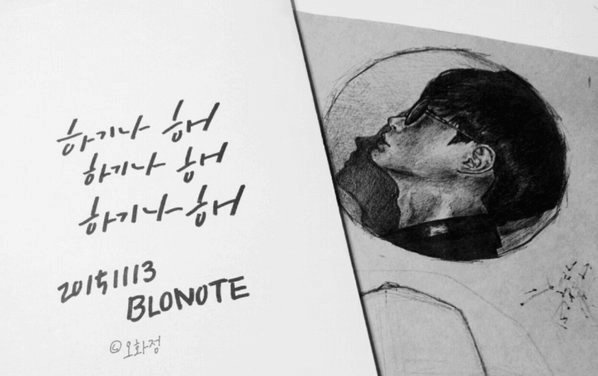 하기나 해
하기나 해
하기나 해
20151113
BLONOTE
© 오화정